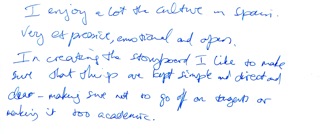 I enjoy a lot the culture in Spain.
Very expressive, emotional and open.
In creating the storyboard I like to make
sure that things are kept simple and direct and
clear - making sure not to go off on tangents or
making it too academic.